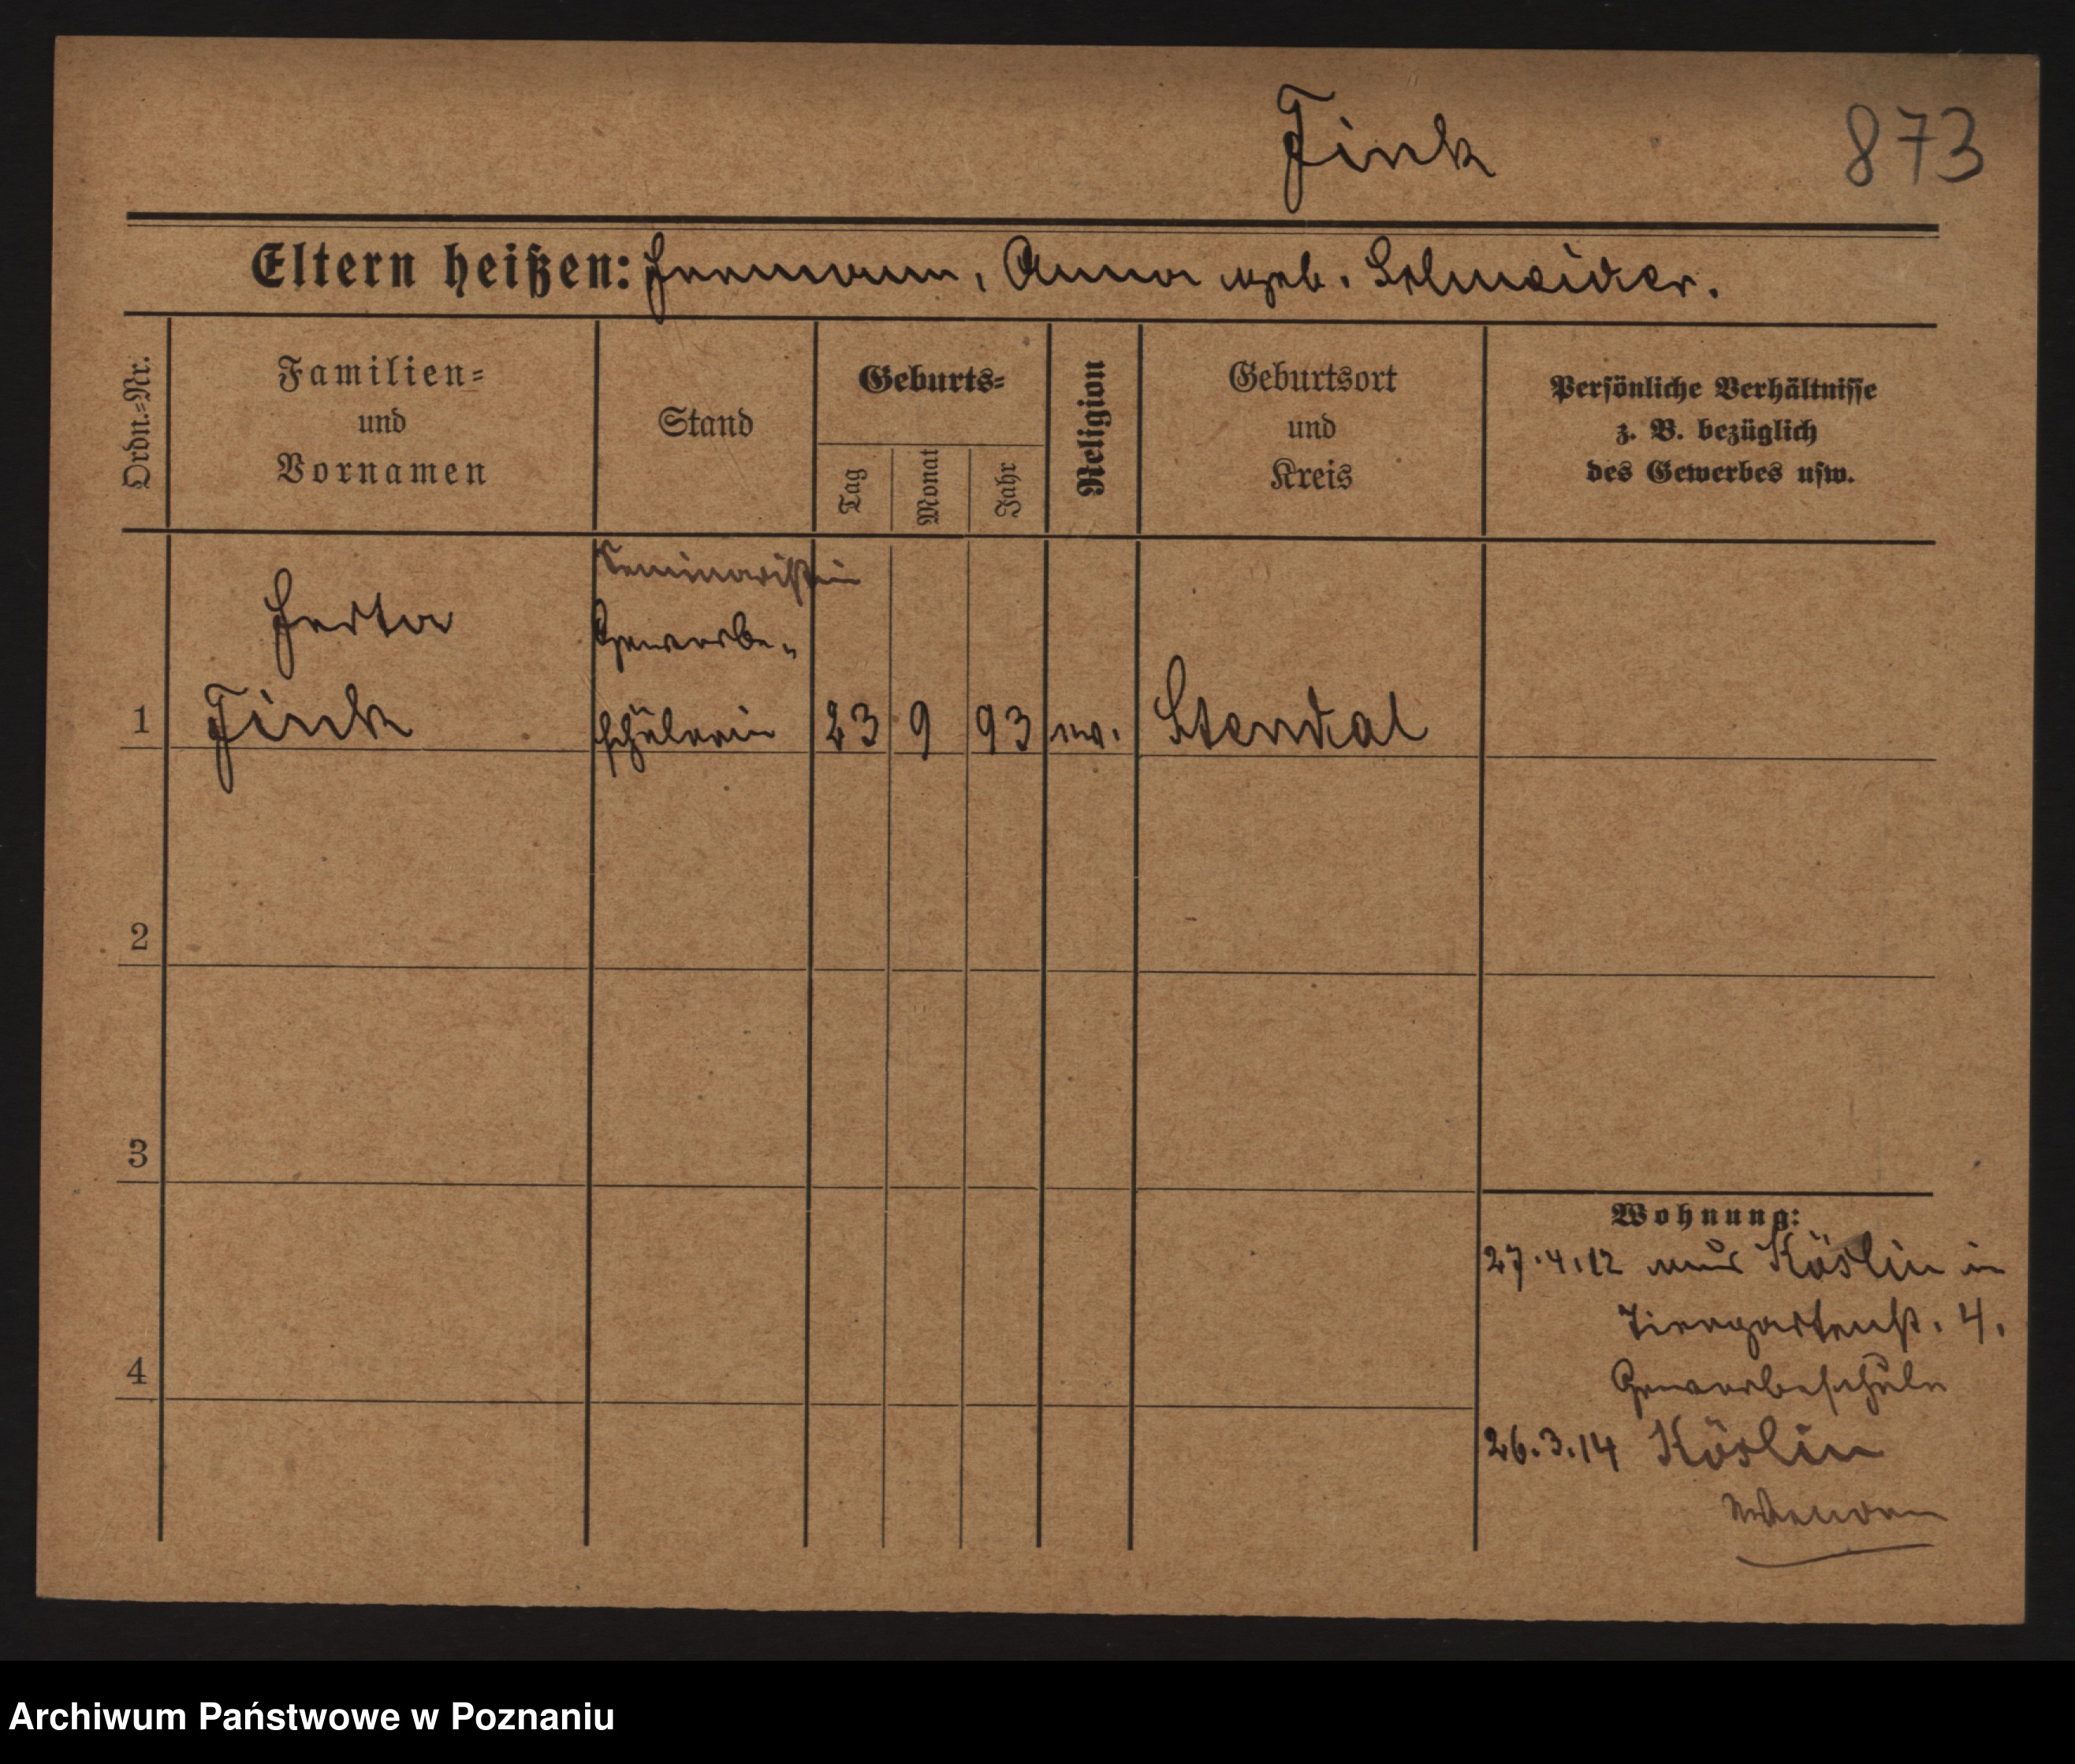 Fink 873
Eltern heißen: Hermann, Anna geb. Schneider.
Ordn.=Nr.
Familien=
und
Vornamen
Stand
Geburts=
Tag
Monat
Jahr
Religion
Geburtsort
und
Kreis
Persönliche Verhältnisse
z. B. bezüglich
des Gewerbes usw.
Seminaristin
Herta Gewerbe=
1 Fink schülerin 23 9 93 ev. Stendal
2
3
4
Wohnung:
27.4.12 aus Köslin in
Tiergartenst. 4.
Gewerbeschule
26.3.14 Köslin
Archiwum Państwowe w Poznaniu